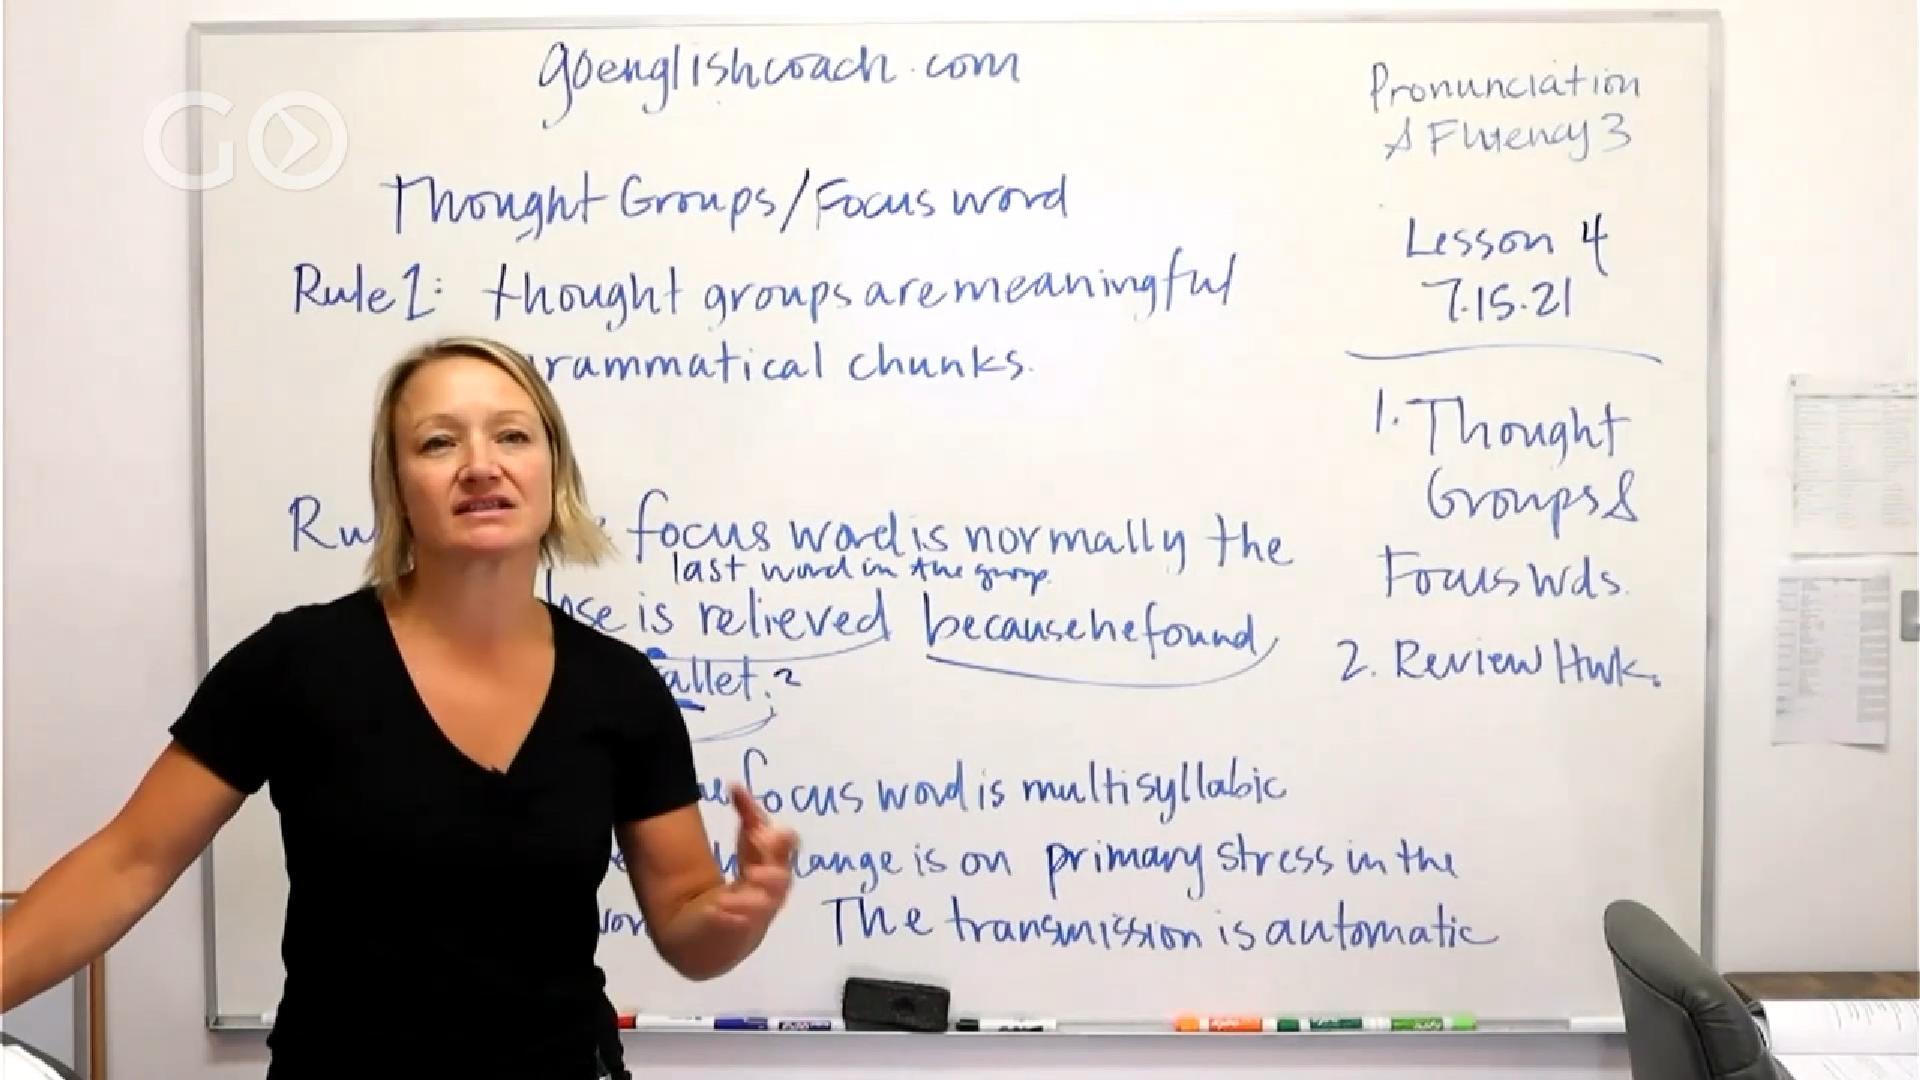 goenglishcoach.com
GO
Thought Groups/Focus word
Rule 1: thought groups are meaningful
grammatical chunks.
focus word is normally the
last word in the group.
is relieved because he found
allet.
focus word is multisyllabic
is on primary stress in the
The transmission is automatic
Pronunciation
& Fluency 3
Lesson 4
7.15.21
1. Thought
Groups &
Focus wds.
2. Review Hwk.